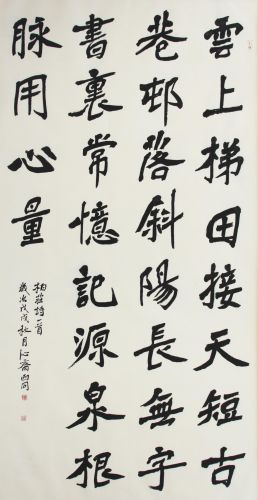 雲上梯田接天短古
巷邨落斜陽長無字
書裏常憶記源泉根
脉用心量
柏莊詩一首
歲次戊戌秋月沁齋